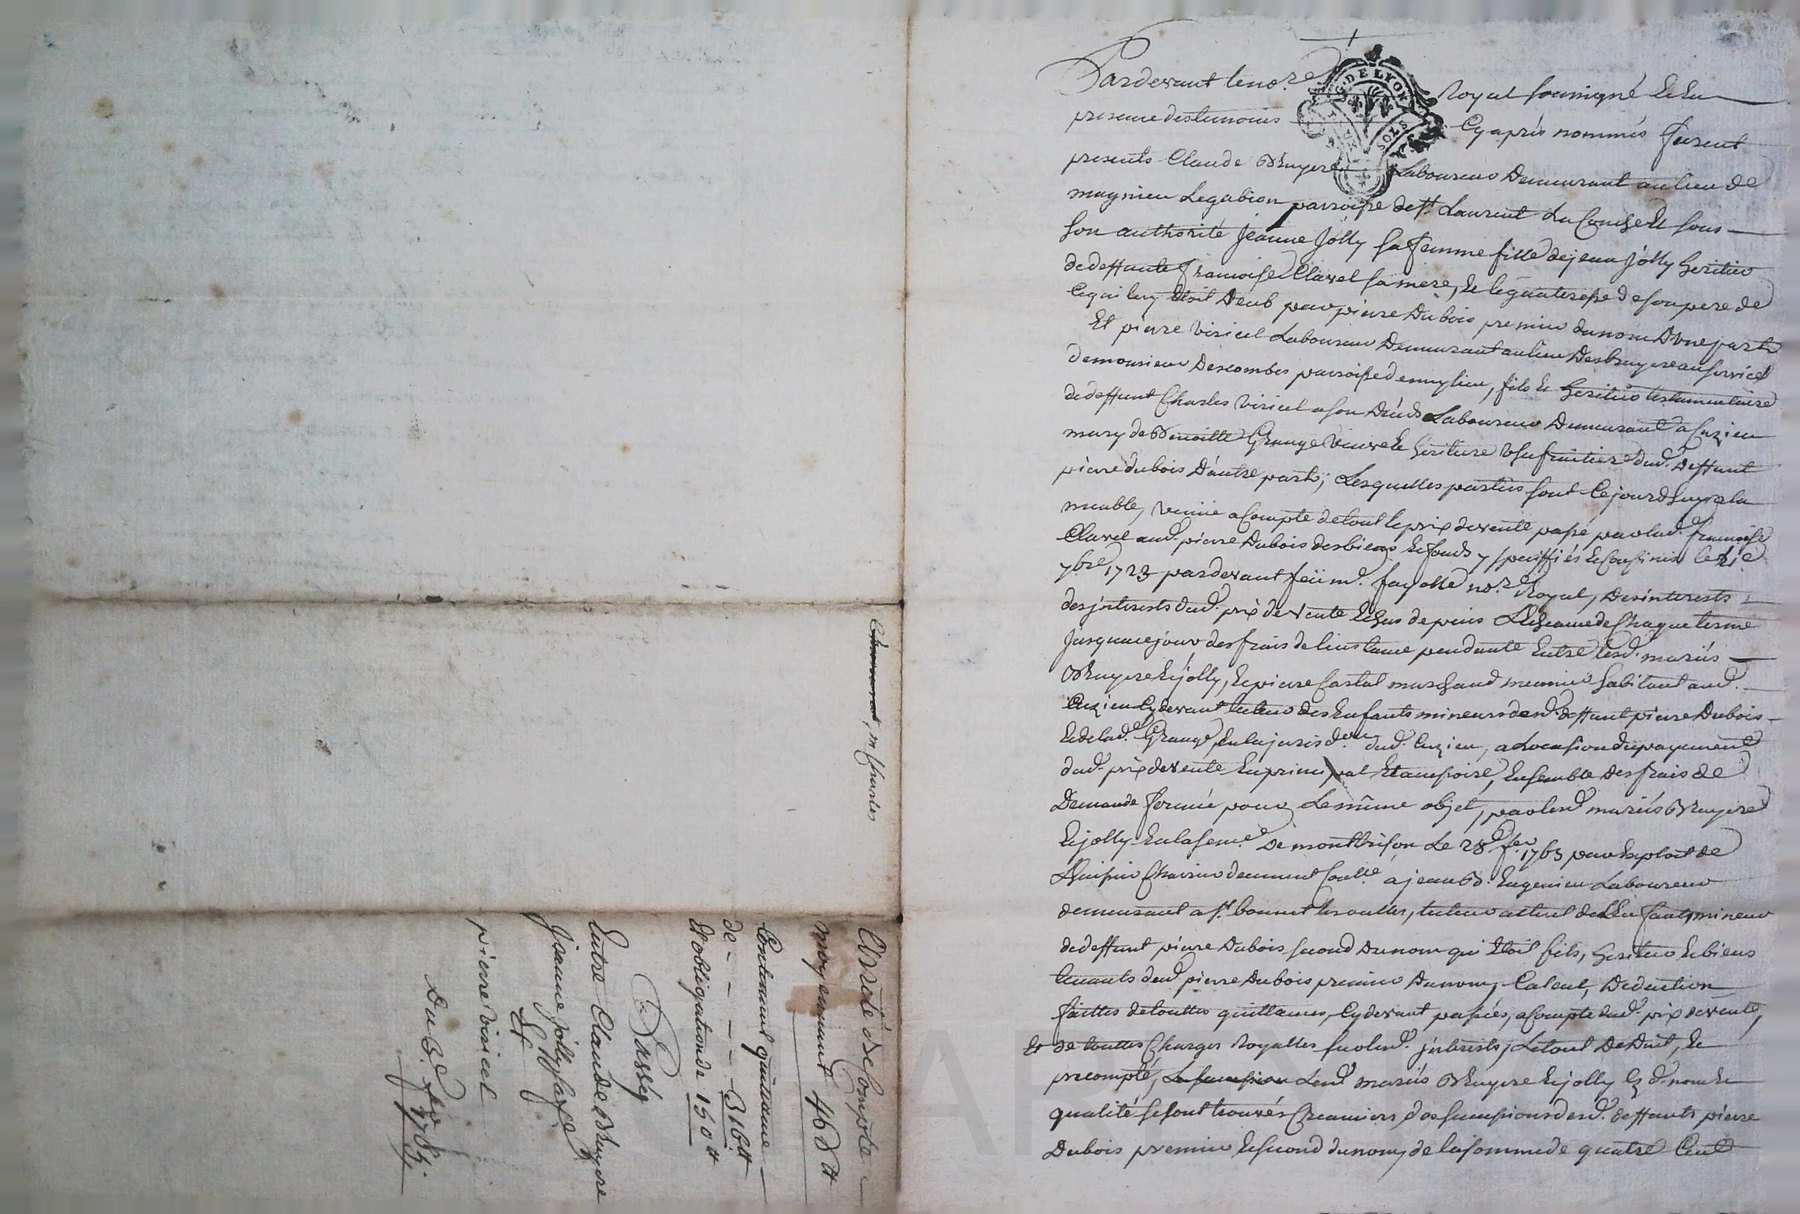 Pardevant le no.re Royal soussigné et en
presence des temoins Cy après nommés furent
presents Claude Bruyere Laboureur Demeurant au lieu de
magnieu Legabion parroisse de St. Laurent La Conche et sous
son authorité Jeanne Jolly sa femme fille de jean Jolly heritier
de deffunte françoise Clavel sa mere, et légataresse de son pere de
Ce qui luy etoit deub par pierre Dubois premier du nom D'une part
Et pierre viricel Laboureur Demeurant au lieu Des bruyere au service
de monsieur Descombes parroisse d'emylieu, fils et heritier testamentaire
de deffunt Charles viricel a son Décéds Laboureur Demeurant a Cuzieu
mary de Benoitte Grange veuve et heritiere Usufruitiere dud. Deffunt
pierre dubois D'autre part; Lesquelles parties sont Cejourdhuy
meuble, venüe a Compte de tout le prix de vente passé par lad. françoise
Clavel aud. pierre Dubois des biens et fonds y speciffiés et Confinés le
7bre 1723 pardevant feü me. fayolle no.re Royal, des interests
des jnterests dud. prix de vente Echus depuis L'Echeance de Chaque terme
Jusqu'a ce jour des frais de l'instance pendante Entre lesd. mariés
Bruyere et jolly, et pierre Castal marchand meunier habitant aud.
Cuzieu Cy devant tuteur des Enfants mineurs desd. deffunt pierre Dubois
et de lad. Grange, en la jurisd.on dud. Cuzieu, a L'ocasion du payement
dud. prix de vente En principal et accessoire, Ensemble Des frais de
Demande formée pour Le même objet, par lesd. mariés Bruyere
et jolly en la sene.é De montbrison Le 28e. fer. 1763 par Exploit de
L'huissier Chavin deument Coullé. a jean B. Eugenieu Laboureur
demeurant a St. bonnet les oulles, tuteur actuel de L'Enfant mineur
de deffunt pierre Dubois second Du nom qui Etoit fils, heritier et biens
tenants dud. pierre Dubois premier Du nom, Calcul, Deduction
faittes de touttes quittances, Cy devant passées, a Compte dud. prix de vente,
Et de touttes Charges Royalles sur lesd. jnterests, Le tout Deduit, et
precompté, Lesd. mariés Bruyere et jolly Esd. noms et
qualité se sont trouvés Creanciers des successions desd. deffunts pierre
Dubois premier et second du nom, de la somme de quatre Cent
m Charles
Arreté de Compte
moyennant 468 tt
Contenant quittance
de - - - - 316 tt
Et obligation de 150 tt
Entre Claude Bruyere
Jeanne jolly sa fe
Et
pierre viricel
Du 3e fer 1765.